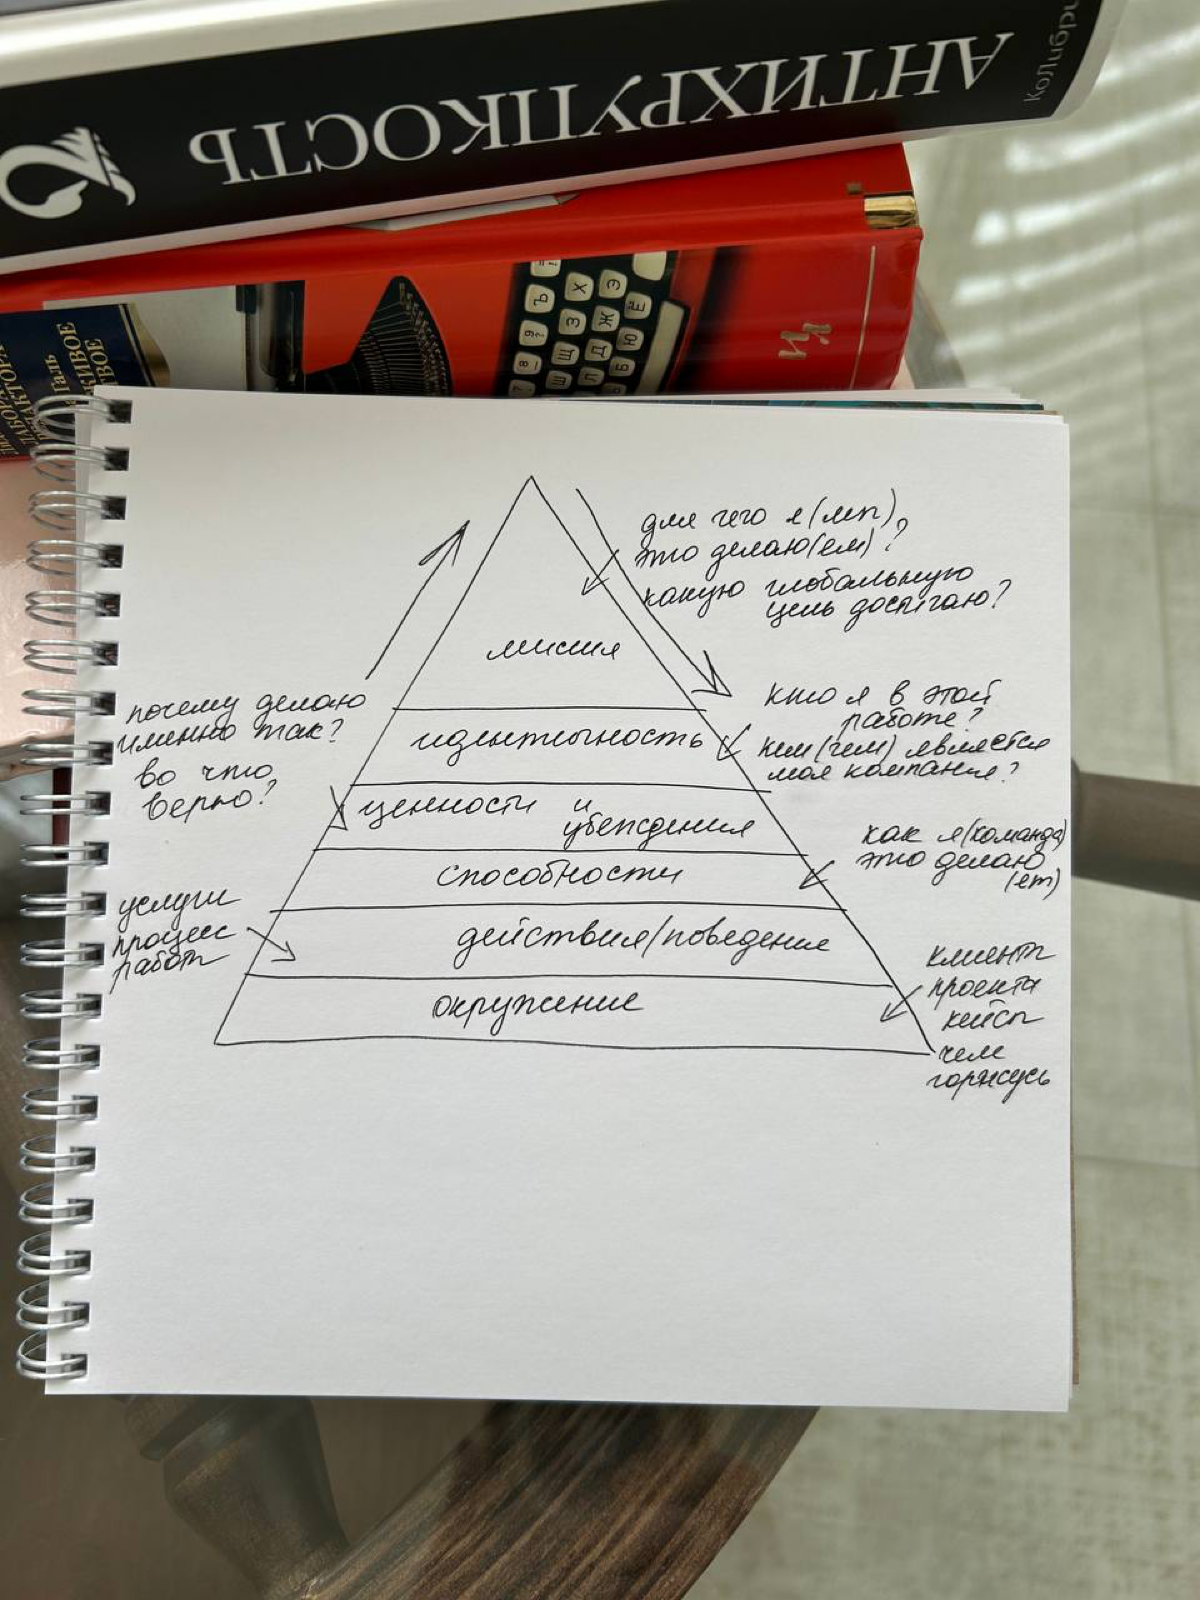 АНТИХРУПКОСТЬ
Колибри
для чего я (мы)
это делаю(ем)?
какую глобальную
цель достигаю?
миссия
почему делаю
именно так?
во что
верю?
идентичность
кто я в этой
работе?
кем (чем) является
моя компания?
ценности и
убеждения
как я (команда)
это делаю
(ет)
способности
услуги
процесс
работы
действия/поведение
клиенты
проекты
кейсы
чем
горжусь
окружение